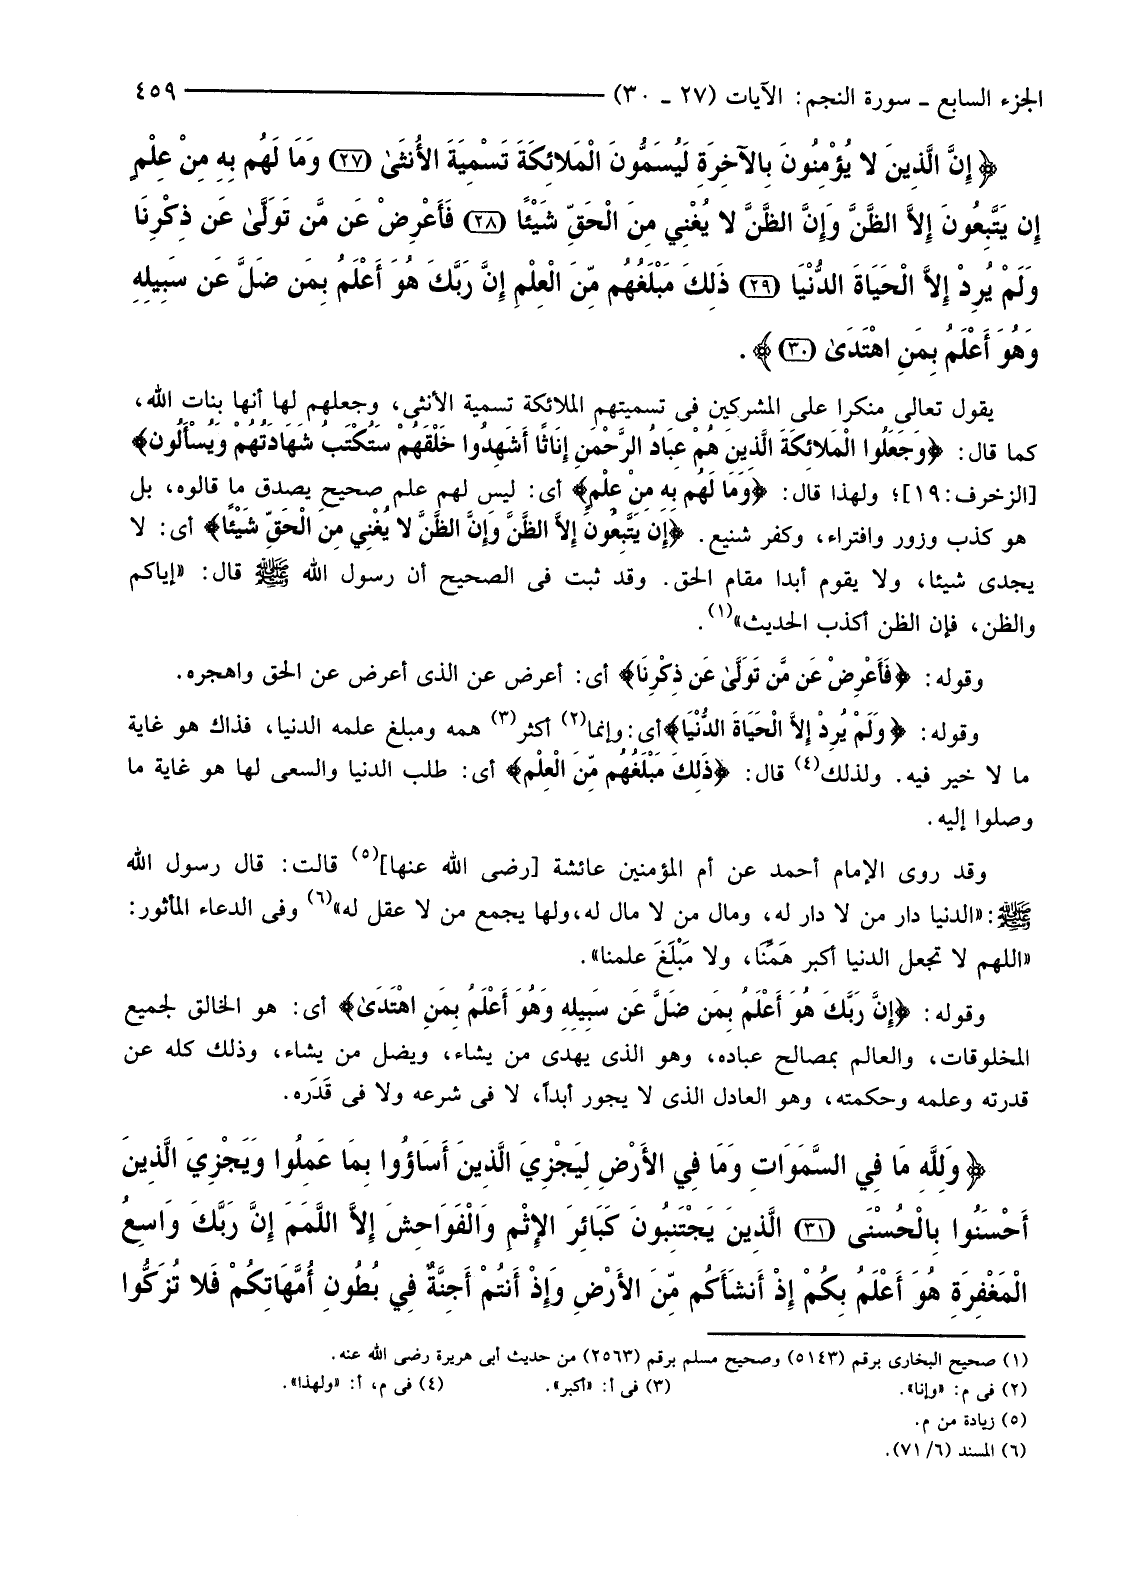 الجزء السابع ـ سورة النجم: الآيات (٢٧ ـ ٣٠) ٤٥٩
﴿ إِنَّ الَّذِينَ لا يُؤْمِنُونَ بِالآخِرَةِ لَيُسَمُّونَ الْمَلائِكَةَ تَسْمِيَةَ الأُنثَىٰ (٢٧) وَمَا لَهُم بِهِ مِنْ عِلْمٍ
إِن يَتَّبِعُونَ إِلاَّ الظَّنَّ وَإِنَّ الظَّنَّ لا يُغْنِي مِنَ الْحَقِّ شَيْئًا (٢٨) فَأَعْرِضْ عَن مَّن تَوَلَّىٰ عَن ذِكْرِنَا
وَلَمْ يُرِدْ إِلاَّ الْحَيَاةَ الدُّنْيَا (٢٩) ذَلِكَ مَبْلَغُهُم مِّنَ الْعِلْمِ إِنَّ رَبَّكَ هُوَ أَعْلَمُ بِمَن ضَلَّ عَن سَبِيلِهِ
وَهُوَ أَعْلَمُ بِمَنِ اهْتَدَىٰ (٣٠) ﴾ .
يقول تعالى منكرا على المشركين فى تسميتهم الملائكة تسمية الأنثى، وجعلهم لها أنها بنات الله،
كما قال: ﴿ وَجَعَلُوا الْمَلائِكَةَ الَّذِينَ هُمْ عِبَادُ الرَّحْمَنِ إِنَاثًا أَشَهِدُوا خَلْقَهُمْ سَتُكْتَبُ شَهَادَتُهُمْ وَيُسْأَلُونَ﴾
[الزخرف:١٩]؛ ولهذا قال: ﴿وَمَا لَهُم بِهِ مِنْ عِلْمٍ﴾ أى: ليس لهم علم صحيح يصدق ما قالوه، بل
هو كذب وزور وافتراء، وكفر شنيع. ﴿إِن يَتَّبِعُونَ إِلاَّ الظَّنَّ وَإِنَّ الظَّنَّ لا يُغْنِي مِنَ الْحَقِّ شَيْئًا﴾ أى: لا
يجدى شيئا، ولا يقوم أبدا مقام الحق. وقد ثبت فى الصحيح أن رسول الله ﷺ قال: «إياكم
والظن، فإن الظن أكذب الحديث»(١).
وقوله: ﴿ فَأَعْرِضْ عَن مَّن تَوَلَّىٰ عَن ذِكْرِنَا﴾ أى: أعرض عن الذى أعرض عن الحق واهجره.
وقوله: ﴿ وَلَمْ يُرِدْ إِلاَّ الْحَيَاةَ الدُّنْيَا﴾أى:وإنما(٢) أكثر(٣) همه ومبلغ علمه الدنيا، فذاك هو غاية
ما لا خير فيه. ولذلك(٤) قال: ﴿ذَلِكَ مَبْلَغُهُم مِّنَ الْعِلْمِ﴾ أى: طلب الدنيا والسعى لها هو غاية ما
وصلوا إليه.
وقد روى الإمام أحمد عن أم المؤمنين عائشة [رضى الله عنها](٥) قالت: قال رسول الله
ﷺ:«الدنيا دار من لا دار له، ومال من لا مال له،ولها يجمع من لا عقل له»(٦) وفى الدعاء المأثور:
«اللهم لا تجعل الدنيا أكبر هَمِّنَا، ولا مَبْلَغَ علمنا».
وقوله: ﴿إِنَّ رَبَّكَ هُوَ أَعْلَمُ بِمَن ضَلَّ عَن سَبِيلِهِ وَهُوَ أَعْلَمُ بِمَنِ اهْتَدَىٰ﴾ أى: هو الخالق لجميع
المخلوقات، والعالم بمصالح عباده، وهو الذى يهدى من يشاء، ويضل من يشاء، وذلك كله عن
قدرته وعلمه وحكمته، وهو العادل الذى لا يجور أبداً، لا فى شرعه ولا فى قَدَره.
﴿ وَلِلَّهِ مَا فِي السَّمَوَاتِ وَمَا فِي الأَرْضِ لِيَجْزِيَ الَّذِينَ أَسَاؤُوا بِمَا عَمِلُوا وَيَجْزِيَ الَّذِينَ
أَحْسَنُوا بِالْحُسْنَى (٣١) الَّذِينَ يَجْتَنِبُونَ كَبَائِرَ الإِثْمِ وَالْفَوَاحِشَ إِلاَّ اللَّمَمَ إِنَّ رَبَّكَ وَاسِعُ
الْمَغْفِرَةِ هُوَ أَعْلَمُ بِكُمْ إِذْ أَنشَأَكُم مِّنَ الأَرْضِ وَإِذْ أَنتُمْ أَجِنَّةٌ فِي بُطُونِ أُمَّهَاتِكُمْ فَلا تُزَكُّوا
(١) صحيح البخارى برقم (٥١٤٣) وصحيح مسلم برقم (٢٥٦٣) من حديث أبى هريرة رضى الله عنه.
(٢) فى م: «وإنا». (٣) فى أ: «أكبر». (٤) فى م، أ: «ولهذا».
(٥) زيادة من م.
(٦) المسند (٦/ ٧١).